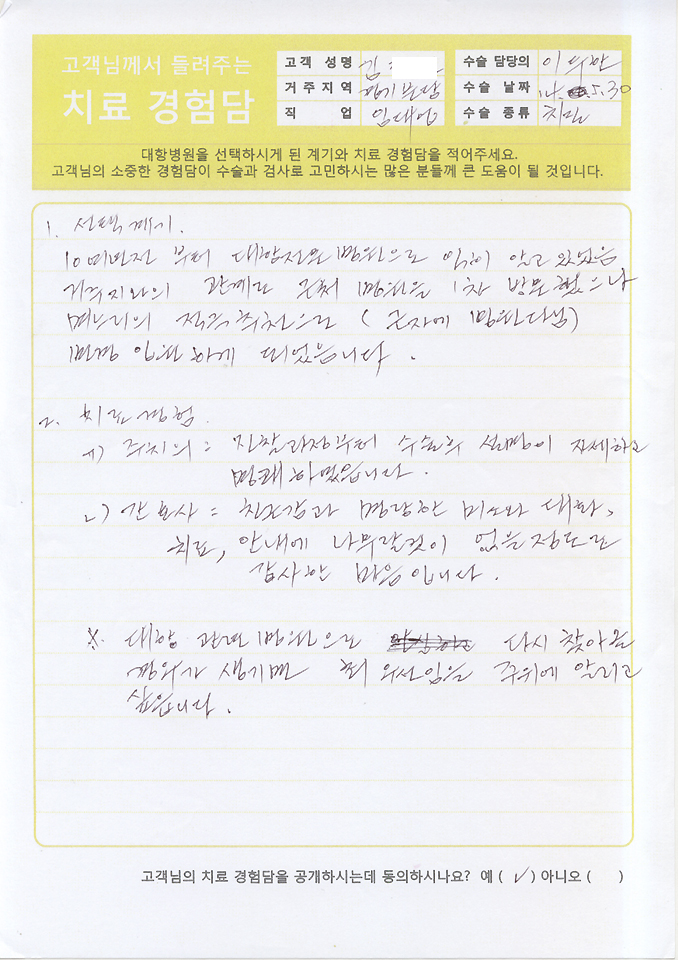 고객님께서 들려주는
치료 경험담
고객 성명 김
거주지역 경기분당
직 업 임대업
수술 담당의 이
수술 날짜 14 5.30
수술 종류 치질
대항병원을 선택하시게 된 계기와 치료 경험담을 적어주세요.
고객님의 소중한 경험담이 수술과 검사로 고민하시는 많은 분들께 큰 도움이 될 것입니다.
1. 선택계기.
10여년전 부터 대항전문병원으로 익히 알고 있었음
거주지와의 관계로 근처 병원을 1차 방문했으나
며느리의 적극추천으로 ( 근자에 병원다님)
변경 입원하게 되었습니다.
2. 치료경험.
1) 주치의 : 진찰과정부터 수술후 설명이 자세하고
명쾌하였습니다.
2) 간호사 : 친조감과 명랑한 미소와 대화,
치료, 안내에 나무랄것이 없을정도로
감사한 마음입니다.
※ 대항 관련 병원으로 다시 찾아올
경우가 생기면 최우선임을 주위에 알리고
싶습니다.
고객님의 치료 경험담을 공개하시는데 동의하시나요? 예 ( ✓ ) 아니오 ( )